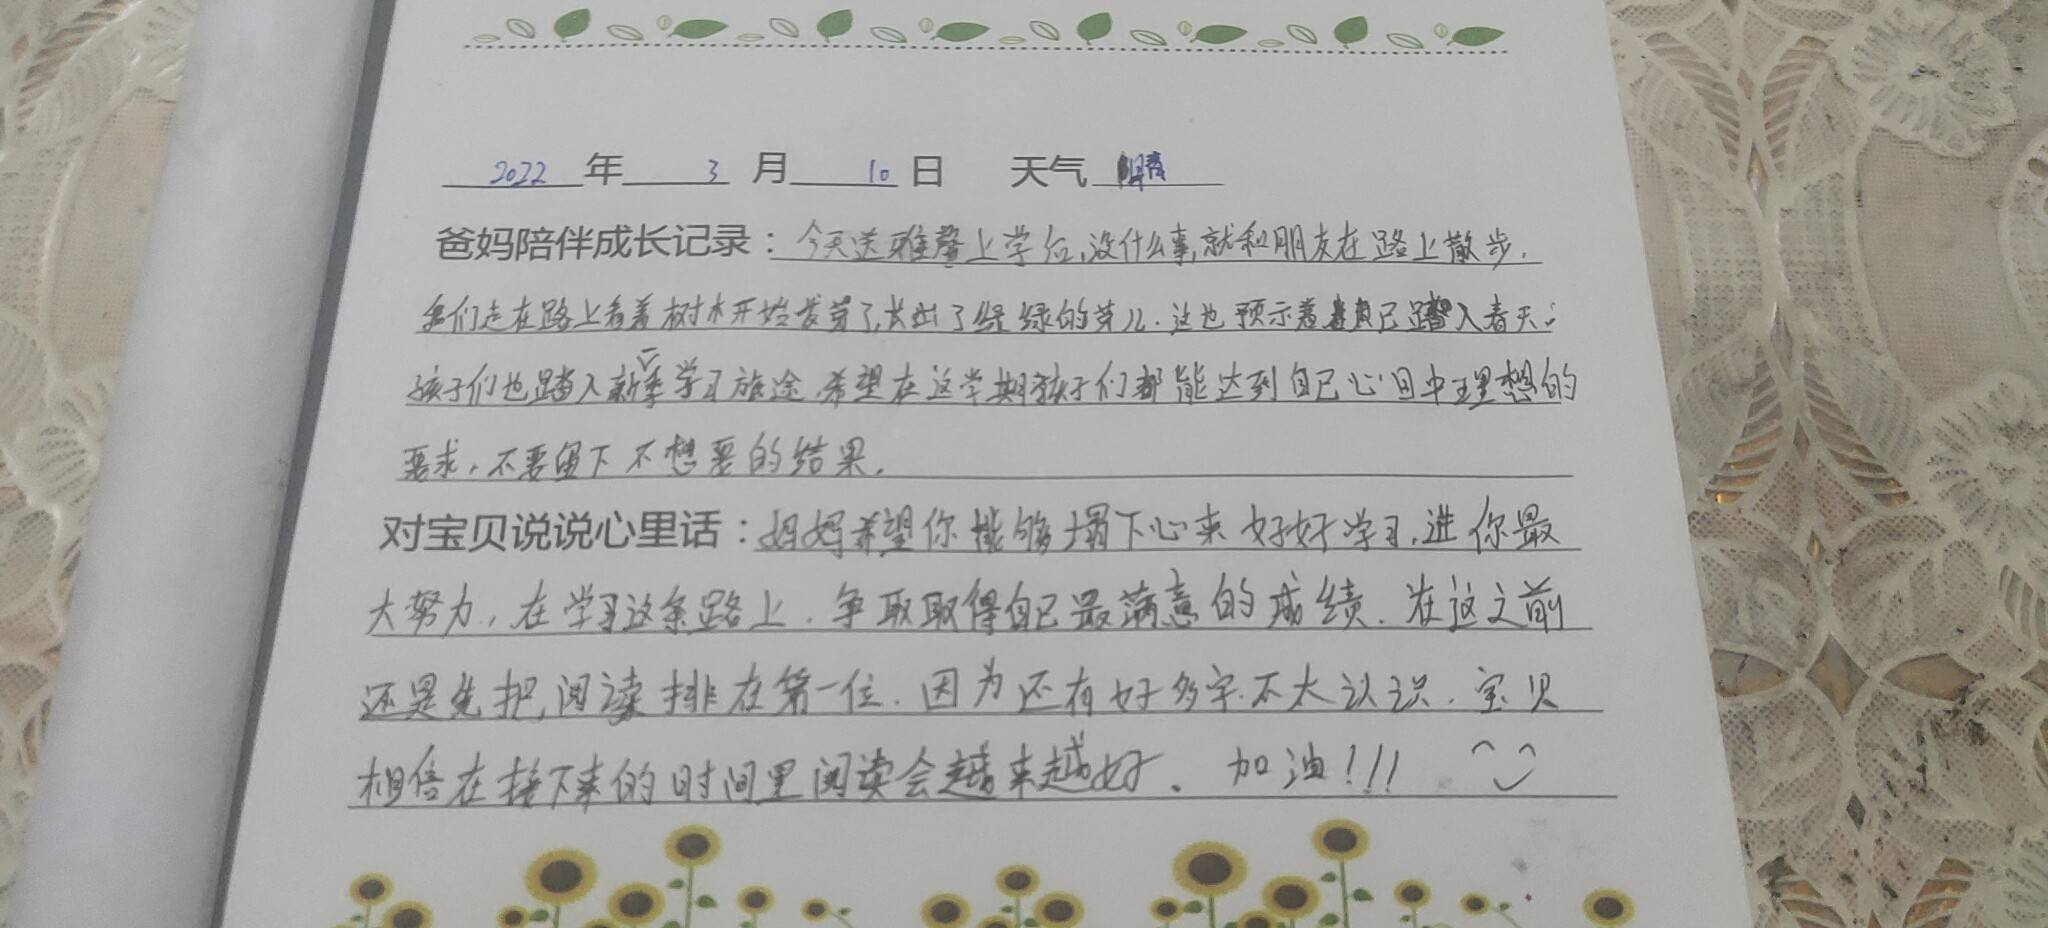 2022年 3 月 10 日 天气 晴
爸妈陪伴成长记录：今天送雅馨上学后,没什么事,就和朋友在路上散步.
我们走在路上看着树木开始发芽了,长出了绿绿的芽儿.这也预示着 已踏入春天.
孩子们也踏入新一季学习旅途.希望在这学期孩子们都能达到自己心目中理想的
要求,不要留下不想要的结果.
对宝贝说说心里话：妈妈希望你能够塌下心来好好学习,进你最
大努力,在学习这条路上.争取取得自己最满意的成绩.在这之前
还是先把阅读排在第一位.因为还有好多字不太认识.宝贝
相信在接下来的时间里阅读会越来越好。加油!!!